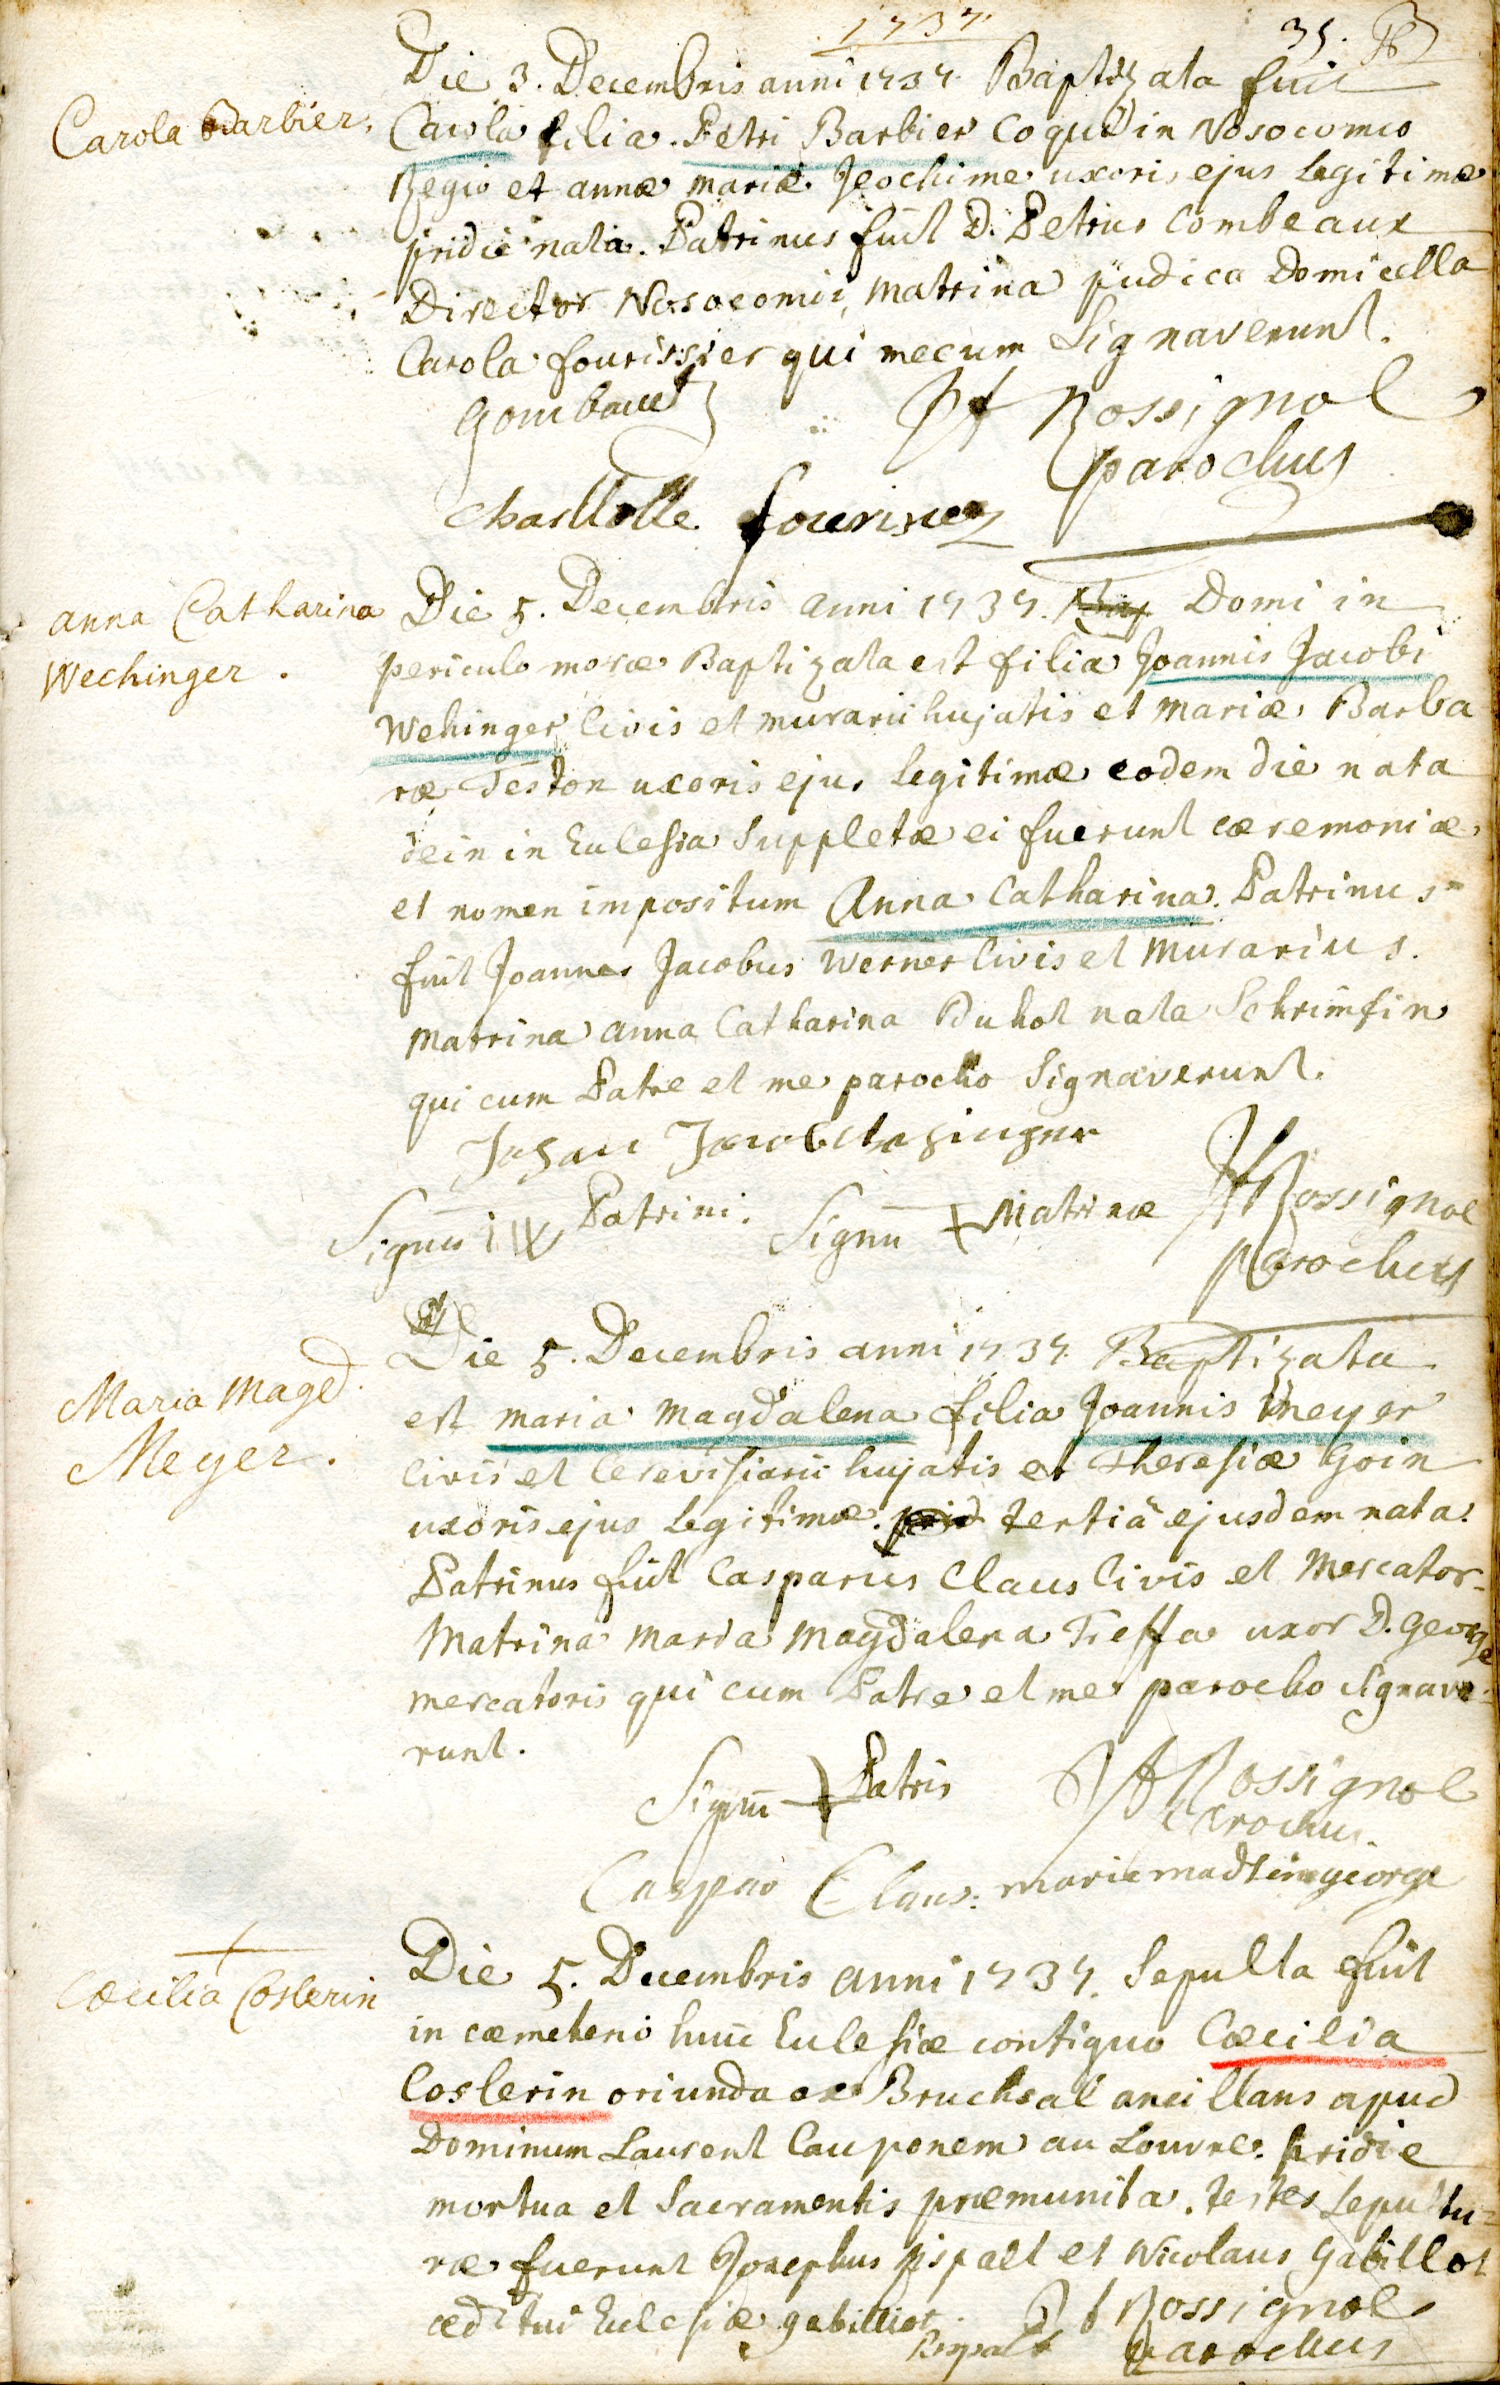 1737
35.
Carola Barbier.
Die 3. Decembris anni 1737. Baptizata fuit
Carola filia Petri Barbier Coqui in Nosocomio
Regio et annæ mariæ Jeochime uxoris ejus legitimæ
pridie nata. Patrinus fuit D. Petrus Combeaux
Director Nosocomii, matrina pudica Domicella
Carola fourissier qui mecum Signaverunt.
Gombault
Rossignol
parochus
Charllotte fourirnez
anna Catharina
Wechinger.
Die 5. Decembris anni 1737. Bap Domi in
periculo moræ Baptizata est filia Joannis Jacobi
Wehinger Civis et murarii hujatis et mariæ Barba
ræ Teston uxoris ejus legitimæ eodem die nata
dein in Eclesia Suppletæ ei fuerunt cæremoniæ
et nomen impositum Anna Catharina. Patrinus
fuit Joannes Jacobus Werner Civis et Murarius.
Matrina anna Catharina Duhol nata Schrimfin
qui cum Patre et me parocho Signaverunt.
Johan Jacob
Signū IW Patrini. Signū + Matrinæ Rossignol
parochus
Maria Magd.
Meyer.
Die 5. Decembris anni 1737. Baptizata
est maria Magdalena filia Joannis Meyer
Civis et Cerevisiarii hujatis et Theresiæ Goin
uxoris ejus legitimæ. prid tertiâ ejusdem nata.
Patrinus fuit Casparus Claus Civis et Mercator.
Matrina Maria Magdalena Tieffa uxor D. George
mercatoris qui cum Patre et me parocho signave-
runt.
Signū + Patris Rossignol
parochus.
Caspar Claus. marie madlein george
+
Cæcilia Coslerin
Die 5. Decembris anni 1737. Sepulta fuit
in cæmeterio huic Eclesiæ contiguo Cæcilia
Coslerin oriunda ex Bruchsal ancillans apud
Dominum Laurent Cauponem au Louvre. pridie
mortua et Sacramentis præmunita. testes Sepultu-
ræ fuerunt Josephus pispalt et Nicolaus Gabillot
æditui Eclesiæ gabilliot. Rossignol
Bispalt parochus